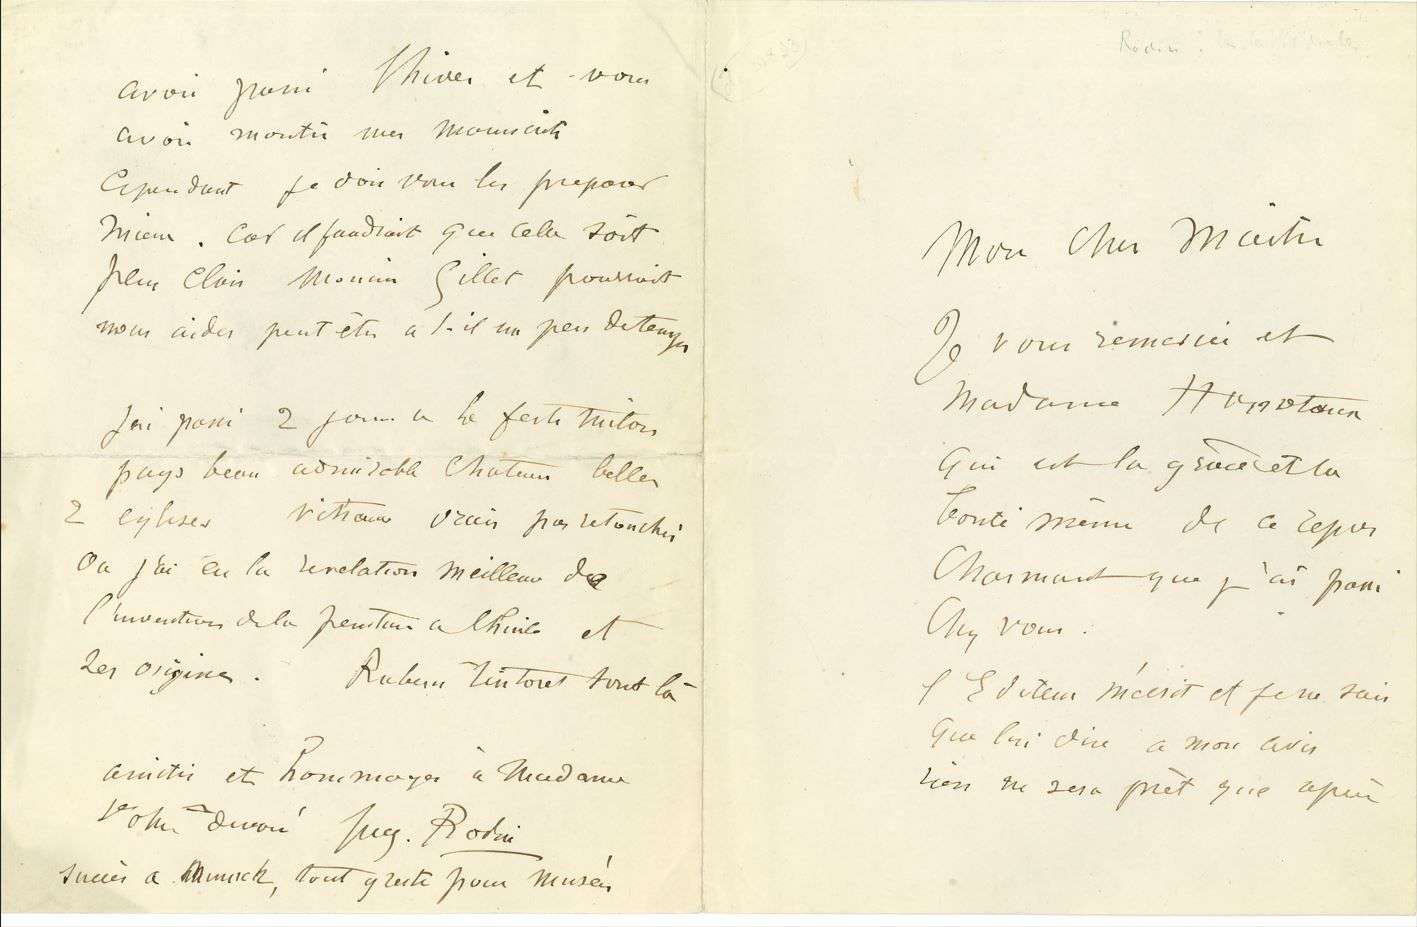 Rodin :
Mon cher Maitre
Je vous remercie et
Madame Hanotaux
qui est la grâce et la
bonté même de ce repos
Charmant que j'ai passé
Chez vous.
l'Editeur m'écrit et je ne sais
que lui dire a mon avis
rien ne sera prêt que après
avoir passé l'hiver et vous
avoir montré mes manuscrits
Cependant je dois vous les preparer
mieux. Car il faudrait que cela soit
plus clair Monsieur Gillet pourrait
nous aider peut être a t-il un peu de temps
J'ai passé 2 jours a la ferté
pays beau admirable Chateau belles
2 eglises vitraux vrais pas retouchés
Ou j'ai eu la revelation meilleure de
l'invention de la peinture a l'huile et
ses origines. Rubens Tintoret sont là
amitiés et hommages à Madame
Votre devoué Aug. Rodin
succès a Munick, tout reste pour musée